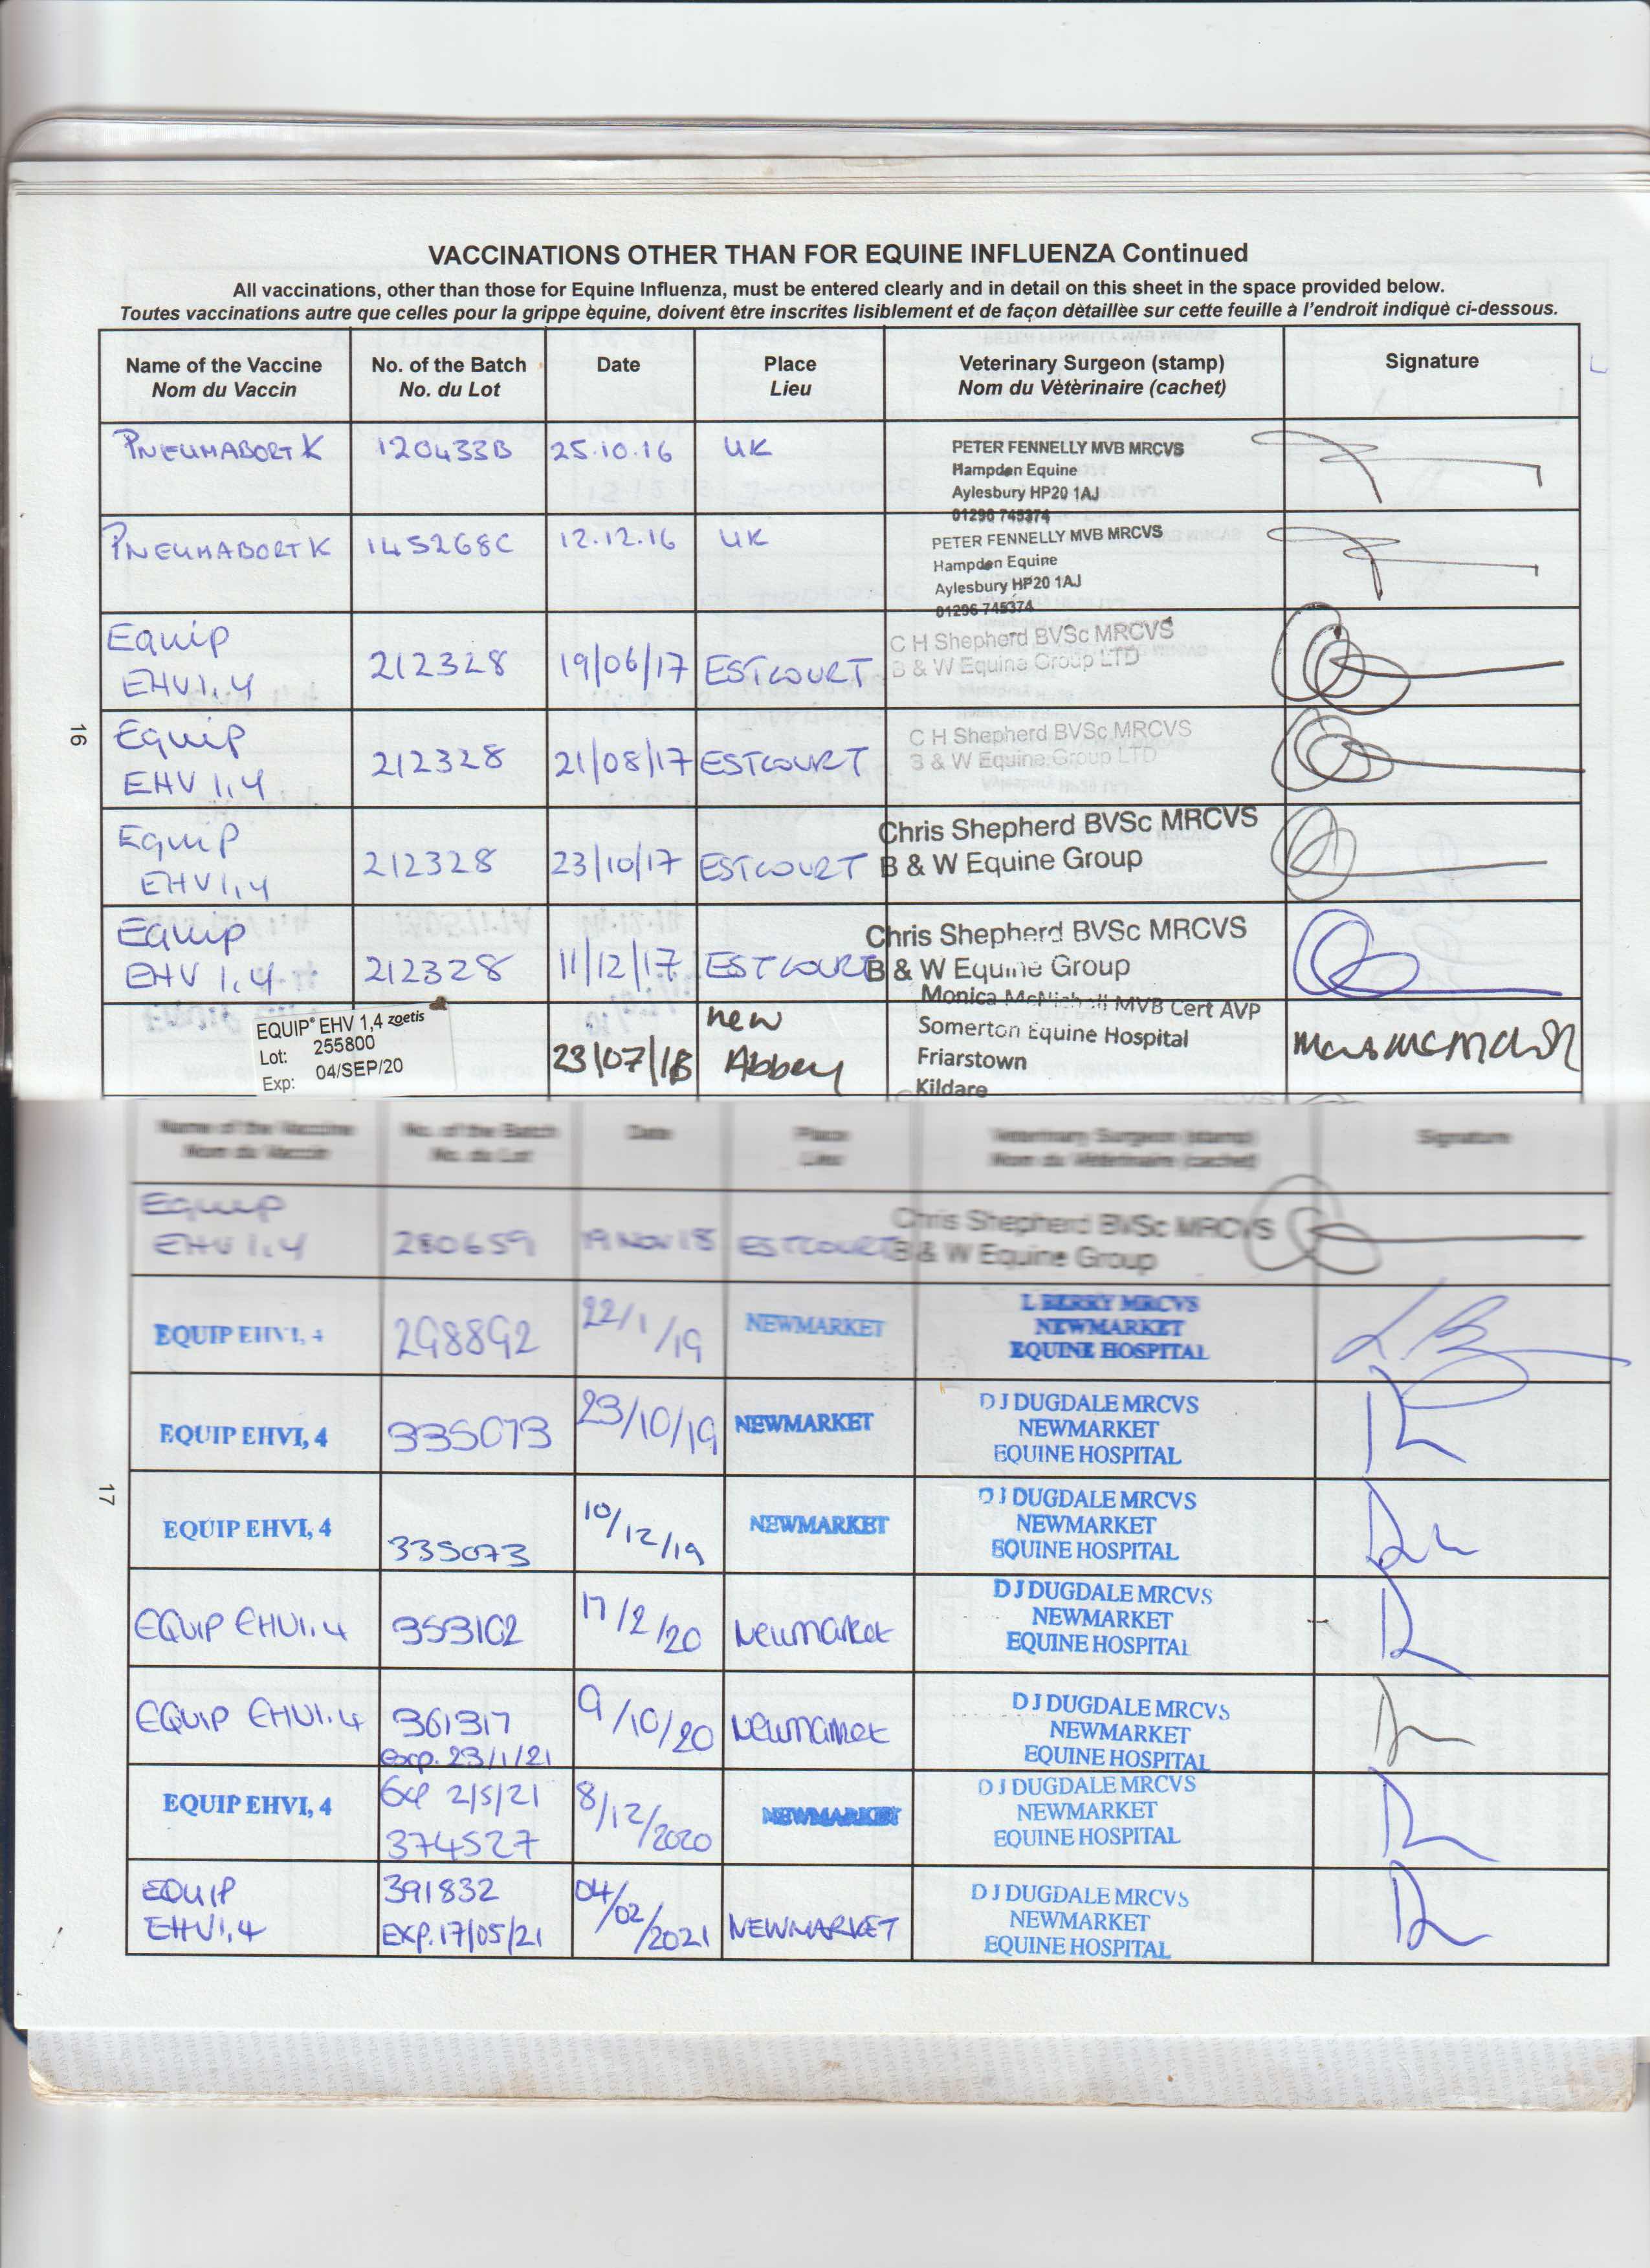 VACCINATIONS OTHER THAN FOR EQUINE INFLUENZA Continued
All vaccinations, other than those for Equine Influenza, must be entered clearly and in detail on this sheet in the space provided below.
Toutes vaccinations autre que celles pour la grippe èquine, doivent être inscrites lisiblement et de façon dètaillèe sur cette feuille à l'endroit indiquè ci-dessous.
Name of the Vaccine No. of the Batch Date Place Veterinary Surgeon (stamp) Signature
Nom du Vaccin No. du Lot Lieu Nom du Vètèrinaire (cachet)
PNEUMABORT K 120433B 25.10.16 UK PETER FENNELLY MVB MRCVS
Hampden Equine
Aylesbury HP20 1AJ
01296 745374
PNEUMABORT K 145268C 12.12.16 UK PETER FENNELLY MVB MRCVS
Hampden Equine
Aylesbury HP20 1AJ
01296 745374
Equip C H Shepherd BVSc MRCVS
EHV 1,4 212328 19/06/17 ESTCOURT B & W Equine Group LTD
Equip C H Shepherd BVSc MRCVS
EHV 1,4 212328 21/08/17 ESTCOURT B & W Equine Group LTD
Equip Chris Shepherd BVSc MRCVS
EHV 1,4 212328 23/10/17 ESTCOURT B & W Equine Group
Equip Chris Shepherd BVSc MRCVS
EHV 1,4 212328 11/12/17 ESTCOURT B & W Equine Group
EQUIP® EHV 1,4 zoetis new Monica MVB Cert AVP
Lot: 255800 23/07/18 Abbey Somerton Equine Hospital
Exp: 04/SEP/20 Friarstown
Kildare
16
Name of the Vaccine No. of the Batch Date Place Veterinary Surgeon (stamp) Signature
Nom du Vaccin No. du Lot Lieu Nom du Vètèrinaire (cachet)
Equip Chris Shepherd BVSc MRCVS
EHV 1,4 280659 19 Nov 18 ESTCOURT B & W Equine Group
EQUIP EHV1, 4 298892 22/1/19 NEWMARKET L BERRY MRCVS
NEWMARKET
EQUINE HOSPITAL
EQUIP EHV1, 4 335073 23/10/19 NEWMARKET D J DUGDALE MRCVS
NEWMARKET
EQUINE HOSPITAL
EQUIP EHV1, 4 335073 10/12/19 NEWMARKET D J DUGDALE MRCVS
NEWMARKET
EQUINE HOSPITAL
EQUIP EHV1.4 353102 17/2/20 Newmarket D J DUGDALE MRCVS
NEWMARKET
EQUINE HOSPITAL
EQUIP EHV1.4 361317 9/10/20 Newmarket D J DUGDALE MRCVS
exp. 23/1/21 NEWMARKET
EQUINE HOSPITAL
EQUIP EHV1, 4 Exp 2/5/21 8/12/2020 NEWMARKET D J DUGDALE MRCVS
374527 NEWMARKET
EQUINE HOSPITAL
EQUIP 391832 04/02/2021 NEWMARKET D J DUGDALE MRCVS
EHV1,4 EXP. 17/05/21 NEWMARKET
EQUINE HOSPITAL
17